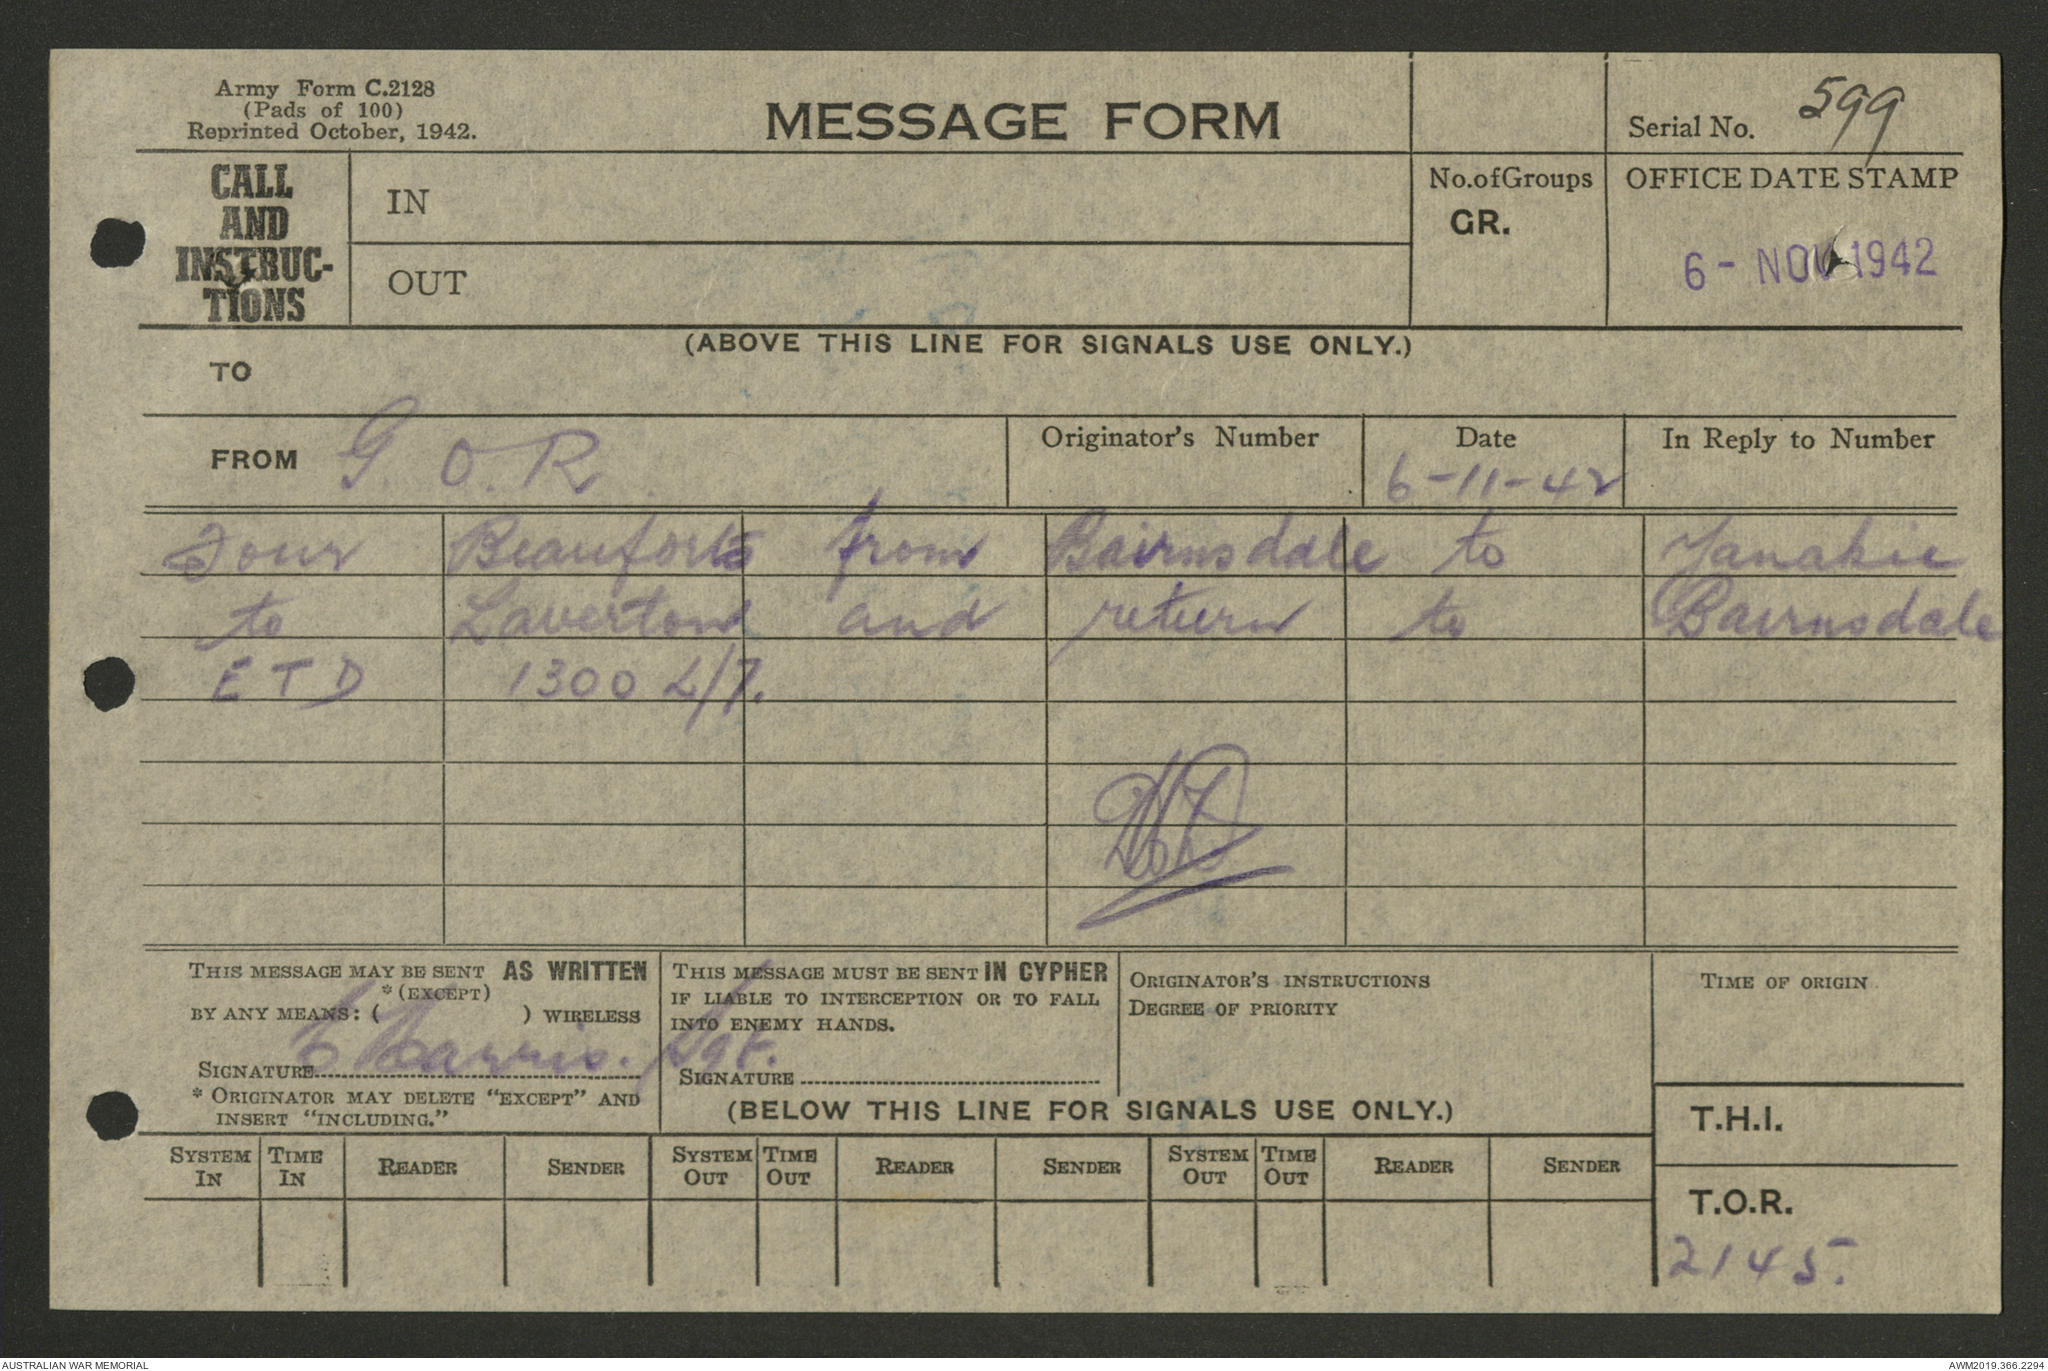 Army Form C.2128
(Pads of 100)
Reprinted October, 1942.
MESSAGE FORM
Serial No. 599
CALL
AND
INSTRUC-
TIONS
IN
OUT
No.ofGroups
GR.
OFFICE DATE STAMP
6 - NOV 1942
(ABOVE THIS LINE FOR SIGNALS USE ONLY.)
TO
FROM G. O. R.
Originator's Number
Date
6-11-42
In Reply to Number
Four Beauforts from Bairnsdale to Yanakie
to Laverton and return to Bairnsdale
ETD 1300 L/7.
THIS MESSAGE MAY BE SENT AS WRITTEN
*(EXCEPT)
BY ANY MEANS: ( ) WIRELESS
C Harris. Sgt.
SIGNATURE
* ORIGINATOR MAY DELETE "EXCEPT" AND
INSERT "INCLUDING."
THIS MESSAGE MUST BE SENT IN CYPHER
IF LIABLE TO INTERCEPTION OR TO FALL
INTO ENEMY HANDS.
SIGNATURE
ORIGINATOR'S INSTRUCTIONS
DEGREE OF PRIORITY
TIME OF ORIGIN
(BELOW THIS LINE FOR SIGNALS USE ONLY.)
T.H.I.
SYSTEM IN TIME IN READER SENDER SYSTEM OUT TIME OUT READER SENDER SYSTEM OUT TIME OUT READER SENDER
T.O.R.
2145.
AUSTRALIAN WAR MEMORIAL
AWM2019.366.2294